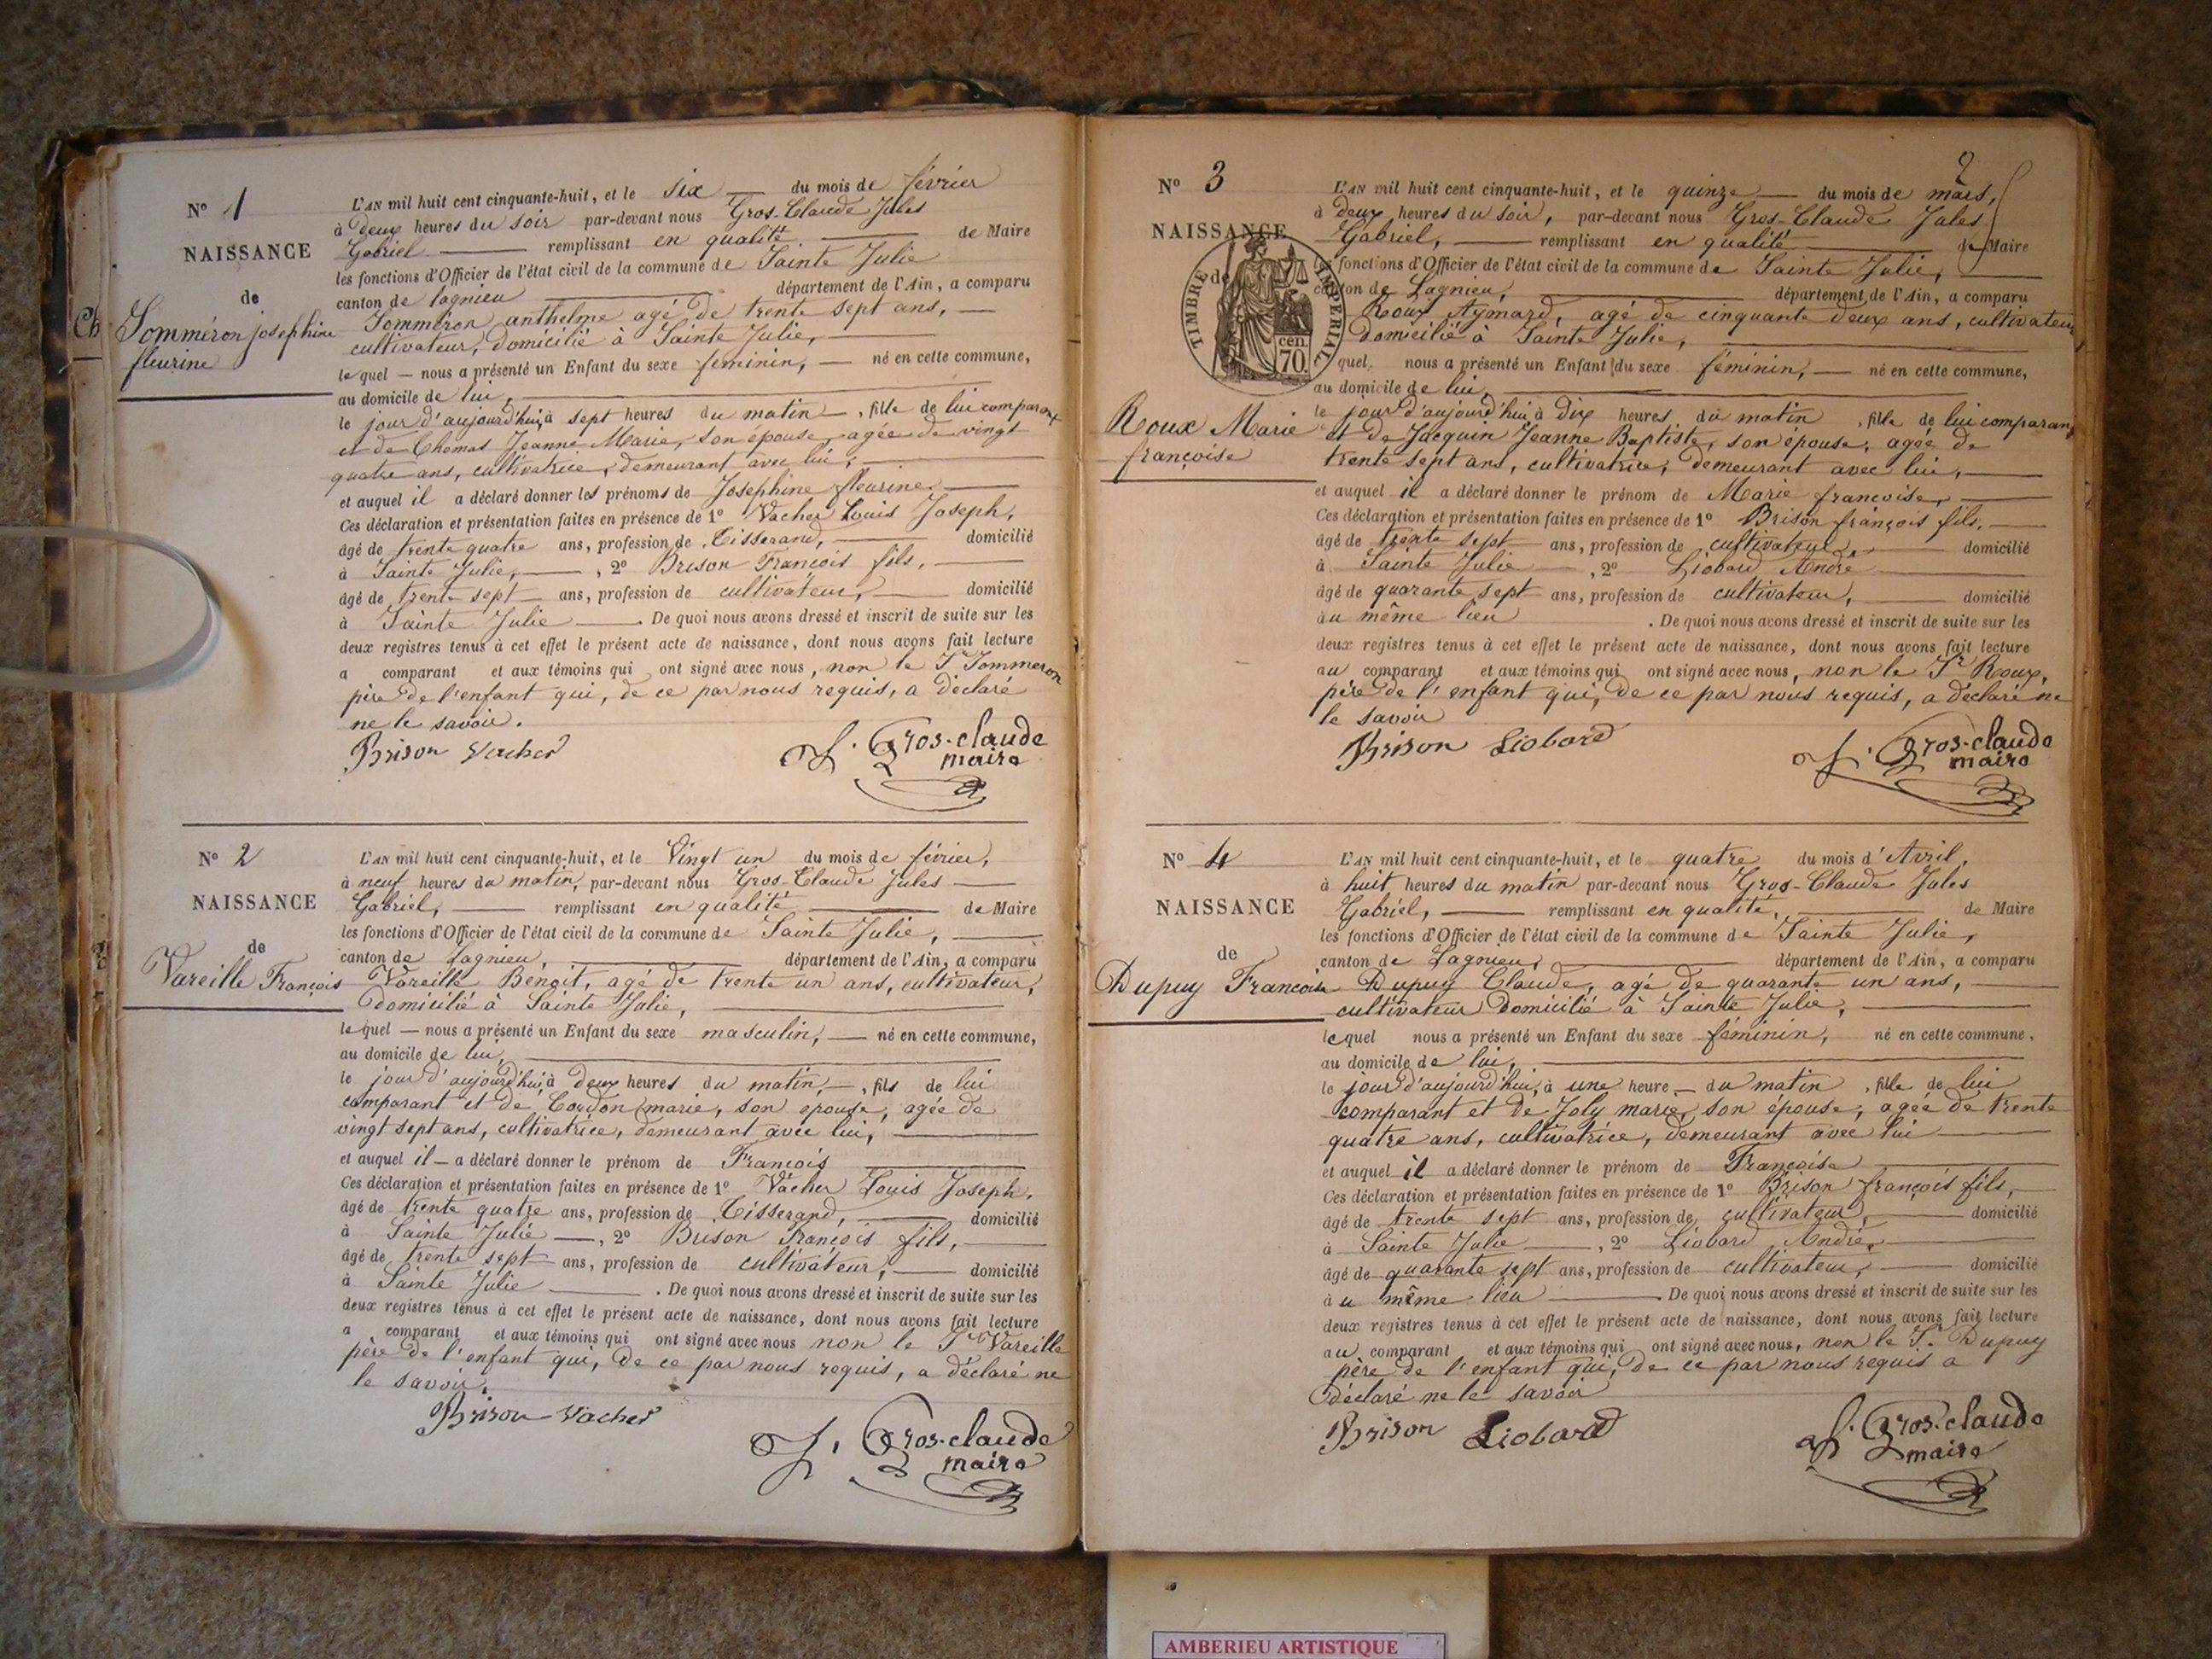 N° 1
NAISSANCE
de
Somméron josephine
fleurine
L'AN mil huit cent cinquante-huit, et le six du mois de février
à deux heures du soir par-devant nous Gros-Claude Jules
Gabriel remplissant en qualité de Maire
les fonctions d'Officier de l'état civil de la commune de Sainte Julie
canton de lagnieu département de l'Ain, a comparu
Somméron anthelme agé de trente sept ans,
cultivateur, domicilié à Sainte Julie,
lequel nous a présenté un Enfant du sexe féminin, né en cette commune,
au domicile de lui,
le jour d'aujourd'hui, à sept heures du matin, fille de lui comparant
et de Thomas Jeanne Marie, son épouse, agée de vingt
quatre ans, cultivatrice, demeurant avec lui,
et auquel il a déclaré donner les prénoms de Josephine fleurine.
Ces déclaration et présentation faites en présence de 1° Vacher Louis Joseph,
âgé de trente quatre ans, profession de Tisserand, domicilié
à Sainte Julie, , 2° Brison François fils,
âgé de trente sept ans, profession de cultivateur, domicilié
à Sainte Julie . De quoi nous avons dressé et inscrit de suite sur les
deux registres tenus à cet effet le présent acte de naissance, dont nous avons fait lecture
a comparant et aux témoins qui ont signé avec nous, non le Sr Sommeron
père de l'enfant qui, de ce par nous requis, a déclaré
ne le savoir.
Brison Vacher J. Gros-claude
maire
N° 2
NAISSANCE
de
Vareille François
L'AN mil huit cent cinquante-huit, et le Vingt un du mois de février,
à neuf heures du matin, par-devant nous Gros-Claude Jules
Gabriel, remplissant en qualité de Maire
les fonctions d'Officier de l'état civil de la commune de Sainte Julie,
canton de Lagnieu, département de l'Ain, a comparu
Vareille Benoit, agé de trente un ans, cultivateur,
domicilié à Sainte Julie,
lequel nous a présenté un Enfant du sexe masculin, né en cette commune,
au domicile de lui,
le jour d'aujourd'hui, à deux heures du matin, , fils de lui
comparant et de Cordon marie, son épouse, agée de
vingt sept ans, cultivatrice, demeurant avec lui,
et auquel il a déclaré donner le prénom de François
Ces déclaration et présentation faites en présence de 1° Vacher Louis Joseph,
âgé de trente quatre ans, profession de Tisserand, domicilié
à Sainte Julie , 2° Brison François fils,
âgé de trente sept ans, profession de cultivateur, domicilié
à Sainte Julie . De quoi nous avons dressé et inscrit de suite sur les
deux registres tenus à cet effet le présent acte de naissance, dont nous avons fait lecture
a comparant et aux témoins qui ont signé avec nous non le Sr Vareille
père de l'enfant qui, de ce par nous requis, a déclaré ne
le savoir.
Brison Vacher
J. Gros-claude
maire
2
N° 3
NAISSANCE
de
TIMBRE IMPERIAL
70 cen.
Roux Marie
françoise
L'AN mil huit cent cinquante-huit, et le quinze du mois de mars,
à deux heures du soir, par-devant nous Gros-Claude Jules
Gabriel, remplissant en qualité de Maire
les fonctions d'Officier de l'état civil de la commune de Sainte Julie,
canton de Lagnieu, département de l'Ain, a comparu
Roux Aymard, agé de cinquante deux ans, cultivateur
domicilié à Sainte Julie,
quel nous a présenté un Enfant du sexe féminin, né en cette commune,
au domicile de lui,
le jour d'aujourd'hui, à Dix heures du matin , fille de lui comparant
et de Jacquin Jeanne Baptiste, son épouse, agée de
trente sept ans, cultivatrice, demeurant avec lui,
et auquel il a déclaré donner le prénom de Marie françoise,
Ces déclaration et présentation faites en présence de 1° Brison françois fils,
âgé de trente sept ans, profession de cultivateur, domicilié
à Sainte Julie , 2° Liobard André
âgé de quarante sept ans, profession de cultivateur, domicilié
au même lieu . De quoi nous avons dressé et inscrit de suite sur les
deux registres tenus à cet effet le présent acte de naissance, dont nous avons fait lecture
au comparant et aux témoins qui ont signé avec nous, non le Sr Roux,
père de l'enfant qui, de ce par nous requis, a déclaré ne
le savoir
Brison Liobard J. Gros-claude
maire
N° 4
NAISSANCE
de
Dupuy Francoise
L'AN mil huit cent cinquante-huit, et le quatre du mois d'Avril,
à huit heures du matin par-devant nous Gros-Claude Jules
Gabriel, remplissant en qualité, de Maire
les fonctions d'Officier de l'état civil de la commune de Sainte Julie,
canton de Lagnieu, département de l'Ain, a comparu
Dupuy Claude, agé de quarante un ans,
cultivateur domicilié à Sainte Julie,
lequel nous a présenté un Enfant du sexe féminin, né en cette commune,
au domicile de lui,
le jour d'aujourd'hui, à une heure du matin , fille de lui
comparant et de Joly marie, son épouse, agée de trente
quatre ans, cultivatrice, demeurant avec lui
et auquel il a déclaré donner le prénom de Françoise
Ces déclaration et présentation faites en présence de 1° Brison françois fils,
âgé de trente sept ans, profession de cultivateur, domicilié
à Sainte Julie , 2° Liobard André,
âgé de quarante sept ans, profession de cultivateur, domicilié
au même lieu . De quoi nous avons dressé et inscrit de suite sur les
deux registres tenus à cet effet le présent acte de naissance, dont nous avons fait lecture
au comparant et aux témoins qui ont signé avec nous, non le Sr. Dupuy
père de l'enfant qui, de ce par nous requis a
déclaré ne le savoir
Brison Liobard J. Gros-claude
maire
AMBERIEU ARTISTIQUE